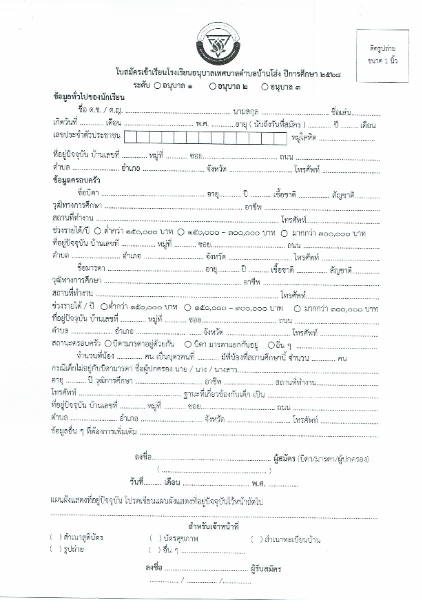 ติดรูปถ่าย
ขนาด 1 นิ้ว
ใบสมัครเข้าเรียนโรงเรียนอนุบาลเทศบาลตำบลบ้านโฮ่ง ปีการศึกษา ๒๕๖๘
ระดับ อนุบาล ๑ อนุบาล ๒ อนุบาล ๓
ข้อมูลทั่วไปของนักเรียน
ชื่อ ด.ช. / ด.ญ. นามสกุล ชื่อเล่น
เกิดวันที่ เดือน พ.ศ. อายุ ( นับถึงวันที่สมัคร ) ปี เดือน
เลขประจำตัวประชาชน หมู่โลหิต
ที่อยู่ปัจจุบัน บ้านเลขที่ หมู่ที่ ซอย ถนน
ตำบล อำเภอ จังหวัด โทรศัพท์
ข้อมูลครอบครัว
ชื่อบิดา อายุ ปี เชื้อชาติ สัญชาติ
วุฒิทางการศึกษา อาชีพ
สถานที่ทำงาน โทรศัพท์
ช่วงรายได้/ปี ต่ำกว่า ๑๕๐,๐๐๐ บาท ๑๕๐,๐๐๐ – ๓๐๐,๐๐๐ บาท มากกว่า ๓๐๐,๐๐๐ บาท
ที่อยู่ปัจจุบัน บ้านเลขที่ หมู่ที่ ซอย ถนน
ตำบล อำเภอ จังหวัด โทรศัพท์
ชื่อมารดา อายุ ปี เชื้อชาติ สัญชาติ
วุฒิทางการศึกษา อาชีพ
สถานที่ทำงาน โทรศัพท์
ช่วงรายได้ / ปี ต่ำกว่า ๑๕๐,๐๐๐ บาท ๑๕๐,๐๐๐ – ๓๐๐,๐๐๐ บาท มากกว่า ๓๐๐,๐๐๐ บาท
ที่อยู่ปัจจุบัน บ้านเลขที่ หมู่ที่ ซอย ถนน
ตำบล อำเภอ จังหวัด โทรศัพท์
สถานะครอบครัว บิดามารดาอยู่ด้วยกัน บิดา มารดาแยกกันอยู่ อื่น ๆ
จำนวนพี่น้อง คน เป็นบุตรคนที่ มีพี่น้องที่สถานศึกษานี้ จำนวน คน
กรณีเด็กไม่อยู่กับบิดามารดา ชื่อผู้ปกครอง นาย / นาง / นางสาว
อายุ ปี วุฒิการศึกษา อาชีพ สถานที่ทำงาน
โทรศัพท์ ฐานะที่เกี่ยวข้องกับเด็ก เป็น
ที่อยู่ปัจจุบัน บ้านเลขที่ หมู่ที่ ซอย ถนน
ตำบล อำเภอ จังหวัด โทรศัพท์
ข้อมูลอื่น ๆ ที่ต้องการเพิ่มเติม
ลงชื่อ ผู้สมัคร (บิดา/มารดา/ผู้ปกครอง)
( )
วันที่ เดือน พ.ศ.
แผนผังแสดงที่อยู่ปัจจุบัน โปรดเขียนแผนผังแสดงที่อยู่ปัจจุบันไว้หน้าถัดไป
สำหรับเจ้าหน้าที่
( ) สำเนาสูติบัตร ( ) บัตรสุขภาพ ( ) สำเนาทะเบียนบ้าน
( ) รูปถ่าย ( ) อื่น ๆ
ลงชื่อ ผู้รับสมัคร
/ /